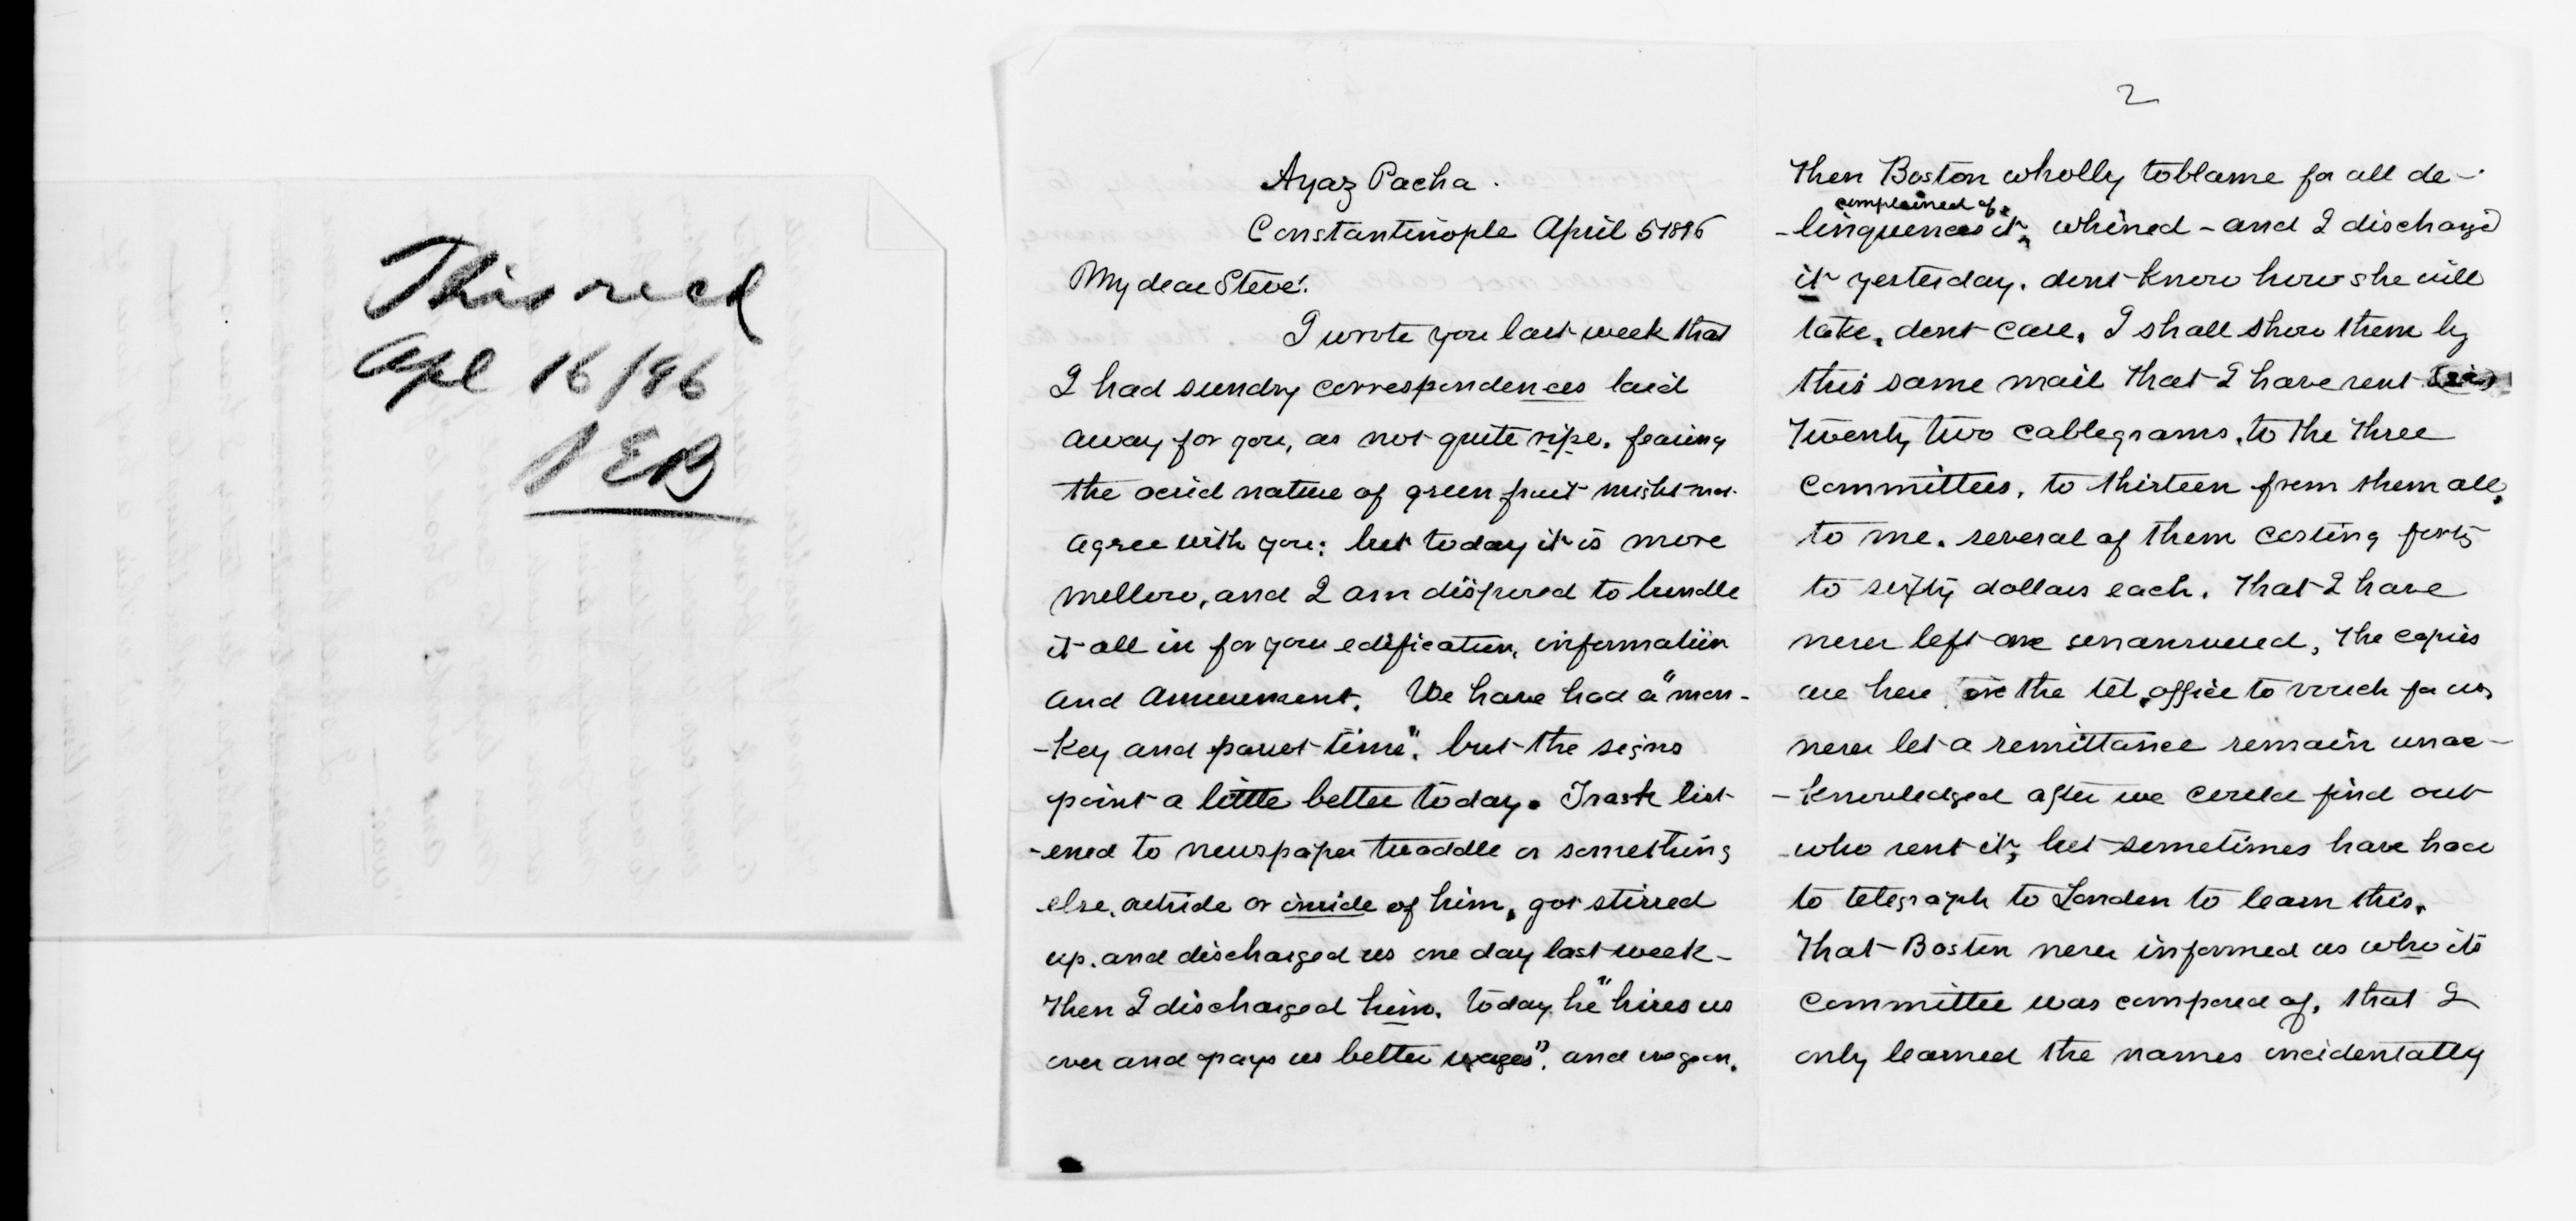 This recd
Apl 16/96
SEB
Ayaz Pacha.
Constantinople April 5 1896
My dear Steve:
I wrote you last week that
I had sundry correspondences laid
away for you, as not quite ripe. fearing
the acrid nature of green fruit might not
agree with you; but today it is more
mellow, and I am disposed to bundle
it all in for your edification, information
and amusement. We have had a "mon-
-key and parrot time". but the signs
point a little better today. Trask list-
-ened to newspaper twaddle or something
else, outside or inside of him, got stirred
up. and discharged us one day last week -
Then I discharged him. Today he "hires us
over and pays us better wages". and we go on.
2
Then Boston wholly to blame for all de-
complained of,
-linquences it, whined - and I discharged
it yesterday. dont know how she will
take, dont care. I shall show them by
this same mail that I have sent
Twenty two cablegrams, to the three
Committees, to thirteen from them all,
to me. several of them costing forty
to sixty dollars each. That I have
never left one unanswered, The copies
are here, in the tel. office to vouch for us,
never let a remittance remain unac-
-knowledged after we could find out
-who sent it, but sometimes have had
to telegraph to London to learn this.
That Boston never informed us who its
Committee was composed of, that I
only learned the names incidentally